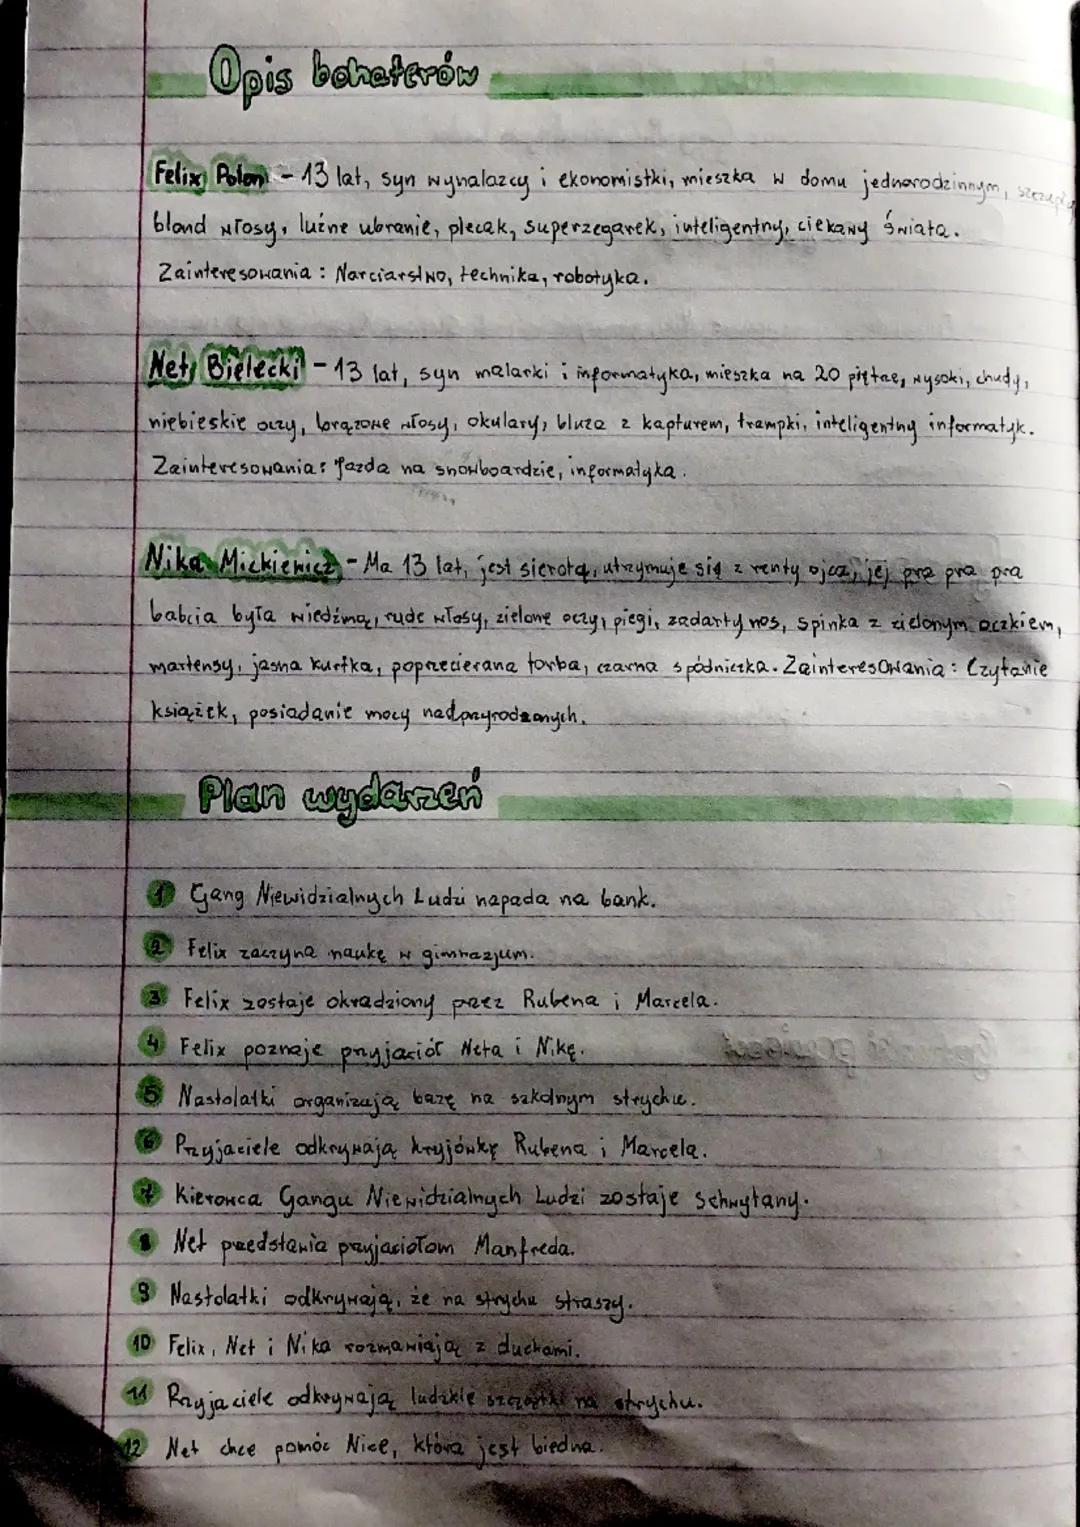 Opis bohaterów
Felix Polon - 13 lat, syn wynalazcy i ekonomistki, mieszka w domu jednorodzinnym, szczupły
blond włosy, luźne ubranie, plecak, superzegarek, inteligentny, ciekawy świata.
Zainteresowania: Narciarstwo, technika, robotyka.
Net Bielecki - 13 lat, syn malarki i informatyka, mieszka na 20 piętrze, wysoki, chudy,
niebieskie oczy, brązowe włosy, okulary, bluza z kapturem, trampki, inteligentny informatyk.
Zainteresowania: Jazda na snowboardzie, informatyka.
Nika Mickiewicz - Ma 13 lat, jest sierotą, utrzymuje się z renty ojca, jej pra pra pra
babcia była wiedźmą, rude włosy, zielone oczy, piegi, zadarty nos, spinka z zielonym oczkiem,
martensy, jasna kurtka, poprzecierana torba, czarna spódniczka. Zainteresowania: Czytanie
książek, posiadanie mocy nadprzyrodzonych.
Plan wydarzeń
1 Gang Niewidzialnych Ludzi napada na bank.
2 Felix zaczyna naukę w gimnazjum.
3 Felix zostaje okradziony przez Rubena i Marcela.
4 Felix poznaje przyjaciół Neta i Nikę.
5 Nastolatki organizują bazę na szkolnym strychu.
6 Przyjaciele odkrywają kryjówkę Rubena i Marcela.
7 Kierowca Gangu Niewidzialnych Ludzi zostaje schwytany.
8 Net przedstawia przyjaciołom Manfreda.
9 Nastolatki odkrywają, że na strychu straszy.
10 Felix, Net i Nika rozmawiają z duchami.
11 Przyjaciele odkrywają ludzkie szczątki na strychu.
12 Net chce pomóc Nice, która jest biedna.